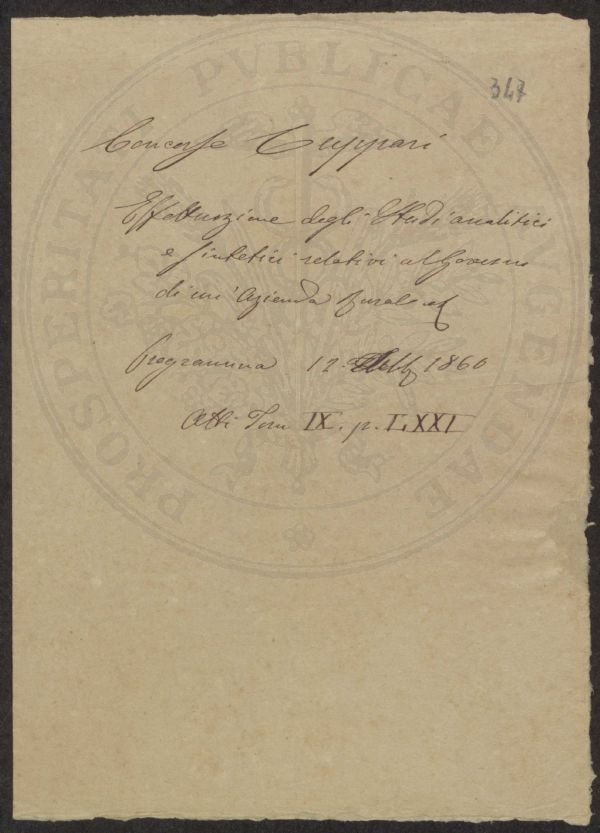 347
Concorso Cuppari
Effettuazione degli Studi analitici
e sintetici relativi al Governo
di un' Azienda rurale
Programma 12 1860
Atti Tom IX. p. LXXI
PROSPERITATI PVBLICAE AVGENDAE